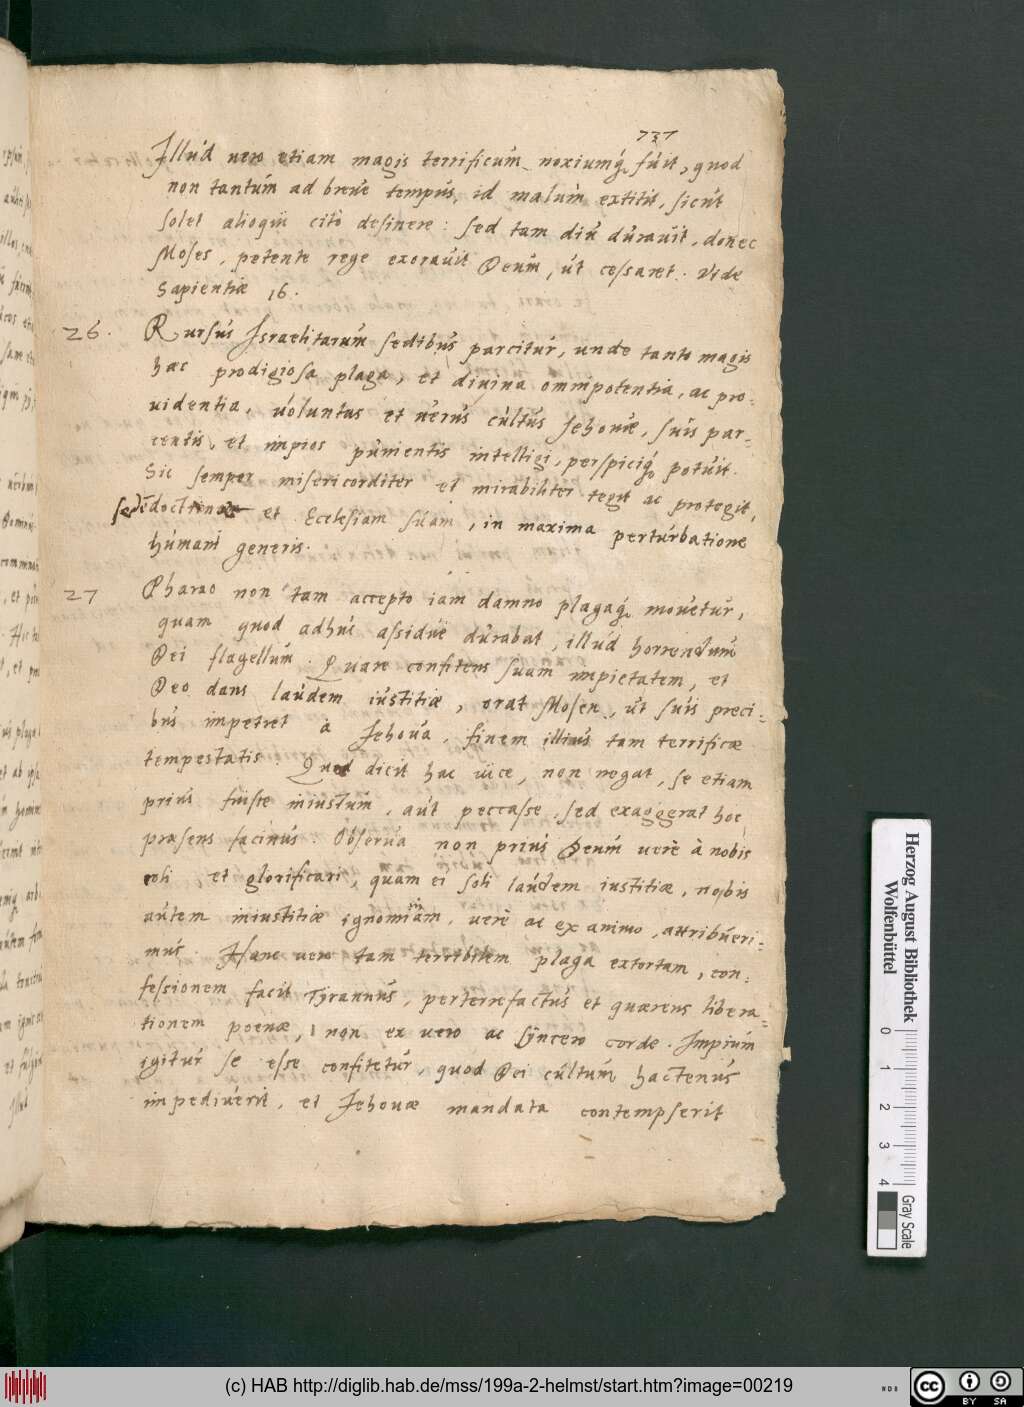 737
Illud vero etiam magis terrificum noxiumq́ꝫ fuit, quod
non tantum ad breve tempus, id malum extitit, sicut
solet alioqui citò desinere: sed tam diu duravit, donec
Moses, petente rege exoravit Deum, ut cessaret. Vide
Sapientiæ 16.
26. Rursus Israelitarum sedibus parcitur, unde tanto magis
hæc prodigiosa plaga, et divina omnipotentia, ac pro-
videntia, voluntas et verus cultus Jehovæ, suis par-
centis, et impios punientis intelligi, perspiciq́ꝫ potuit.
Sic semper misericorditer et mirabiliter tegit ac protegit,
doctrinæ et Ecclesiam suam, in maxima perturbatione
humani generis.
27 Pharao non tam accepto iam damno plagaq́ꝫ movetur,
quam quod adhuc assiduè durabat, illud horrendum
Dei flagellum. Quare confitens suam impietatem, et
Deo dans laudem iustitiæ, orat Mosen, ut suis preci-
bus impetret à Jehova, finem illius tam terrificæ
tempestatis. Quod dicit hac vice, non negat, se etiam
prius fuisse iniustum, aut peccasse, sed exaggerat hoc
præsens facinus. Observa non prius Deum verè à nobis
coli et glorificari, quam ei soli laudem iustitiæ, nobis
autem iniustitiæ ignominiam, verè ac ex animo, attribueri-
mus. Hanc vero tam terribilem plaga extortam, con-
fessionem facit Tyrannus, perterrefactus et quærens libera-
tionem poenæ, non ex vero ac syncero corde. Impium
igitur se esse confitetur, quod Dei cultum hactenus
impediverit, et Jehovæ mandata contempserit
Herzog August Bibliothek
Wolfenbüttel
0 1 2 3 4
Gray Scale
(c) HAB http://diglib.hab.de/mss/199a-2-helmst/start.htm?image=00219
cc BY SA